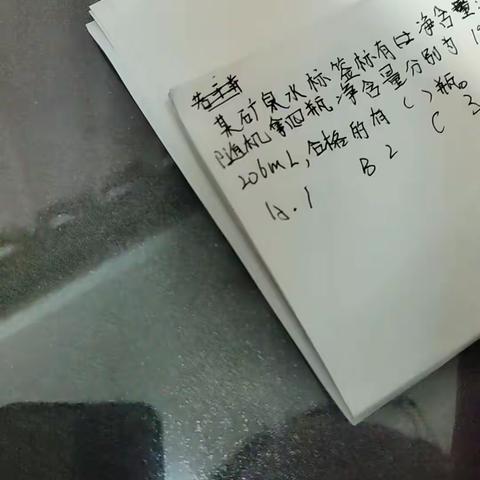 某矿泉水标签标有以净含量
随机拿四瓶,净含量分别为 19
206mL,合格的有( )瓶。
A. 1 B 2 C 3